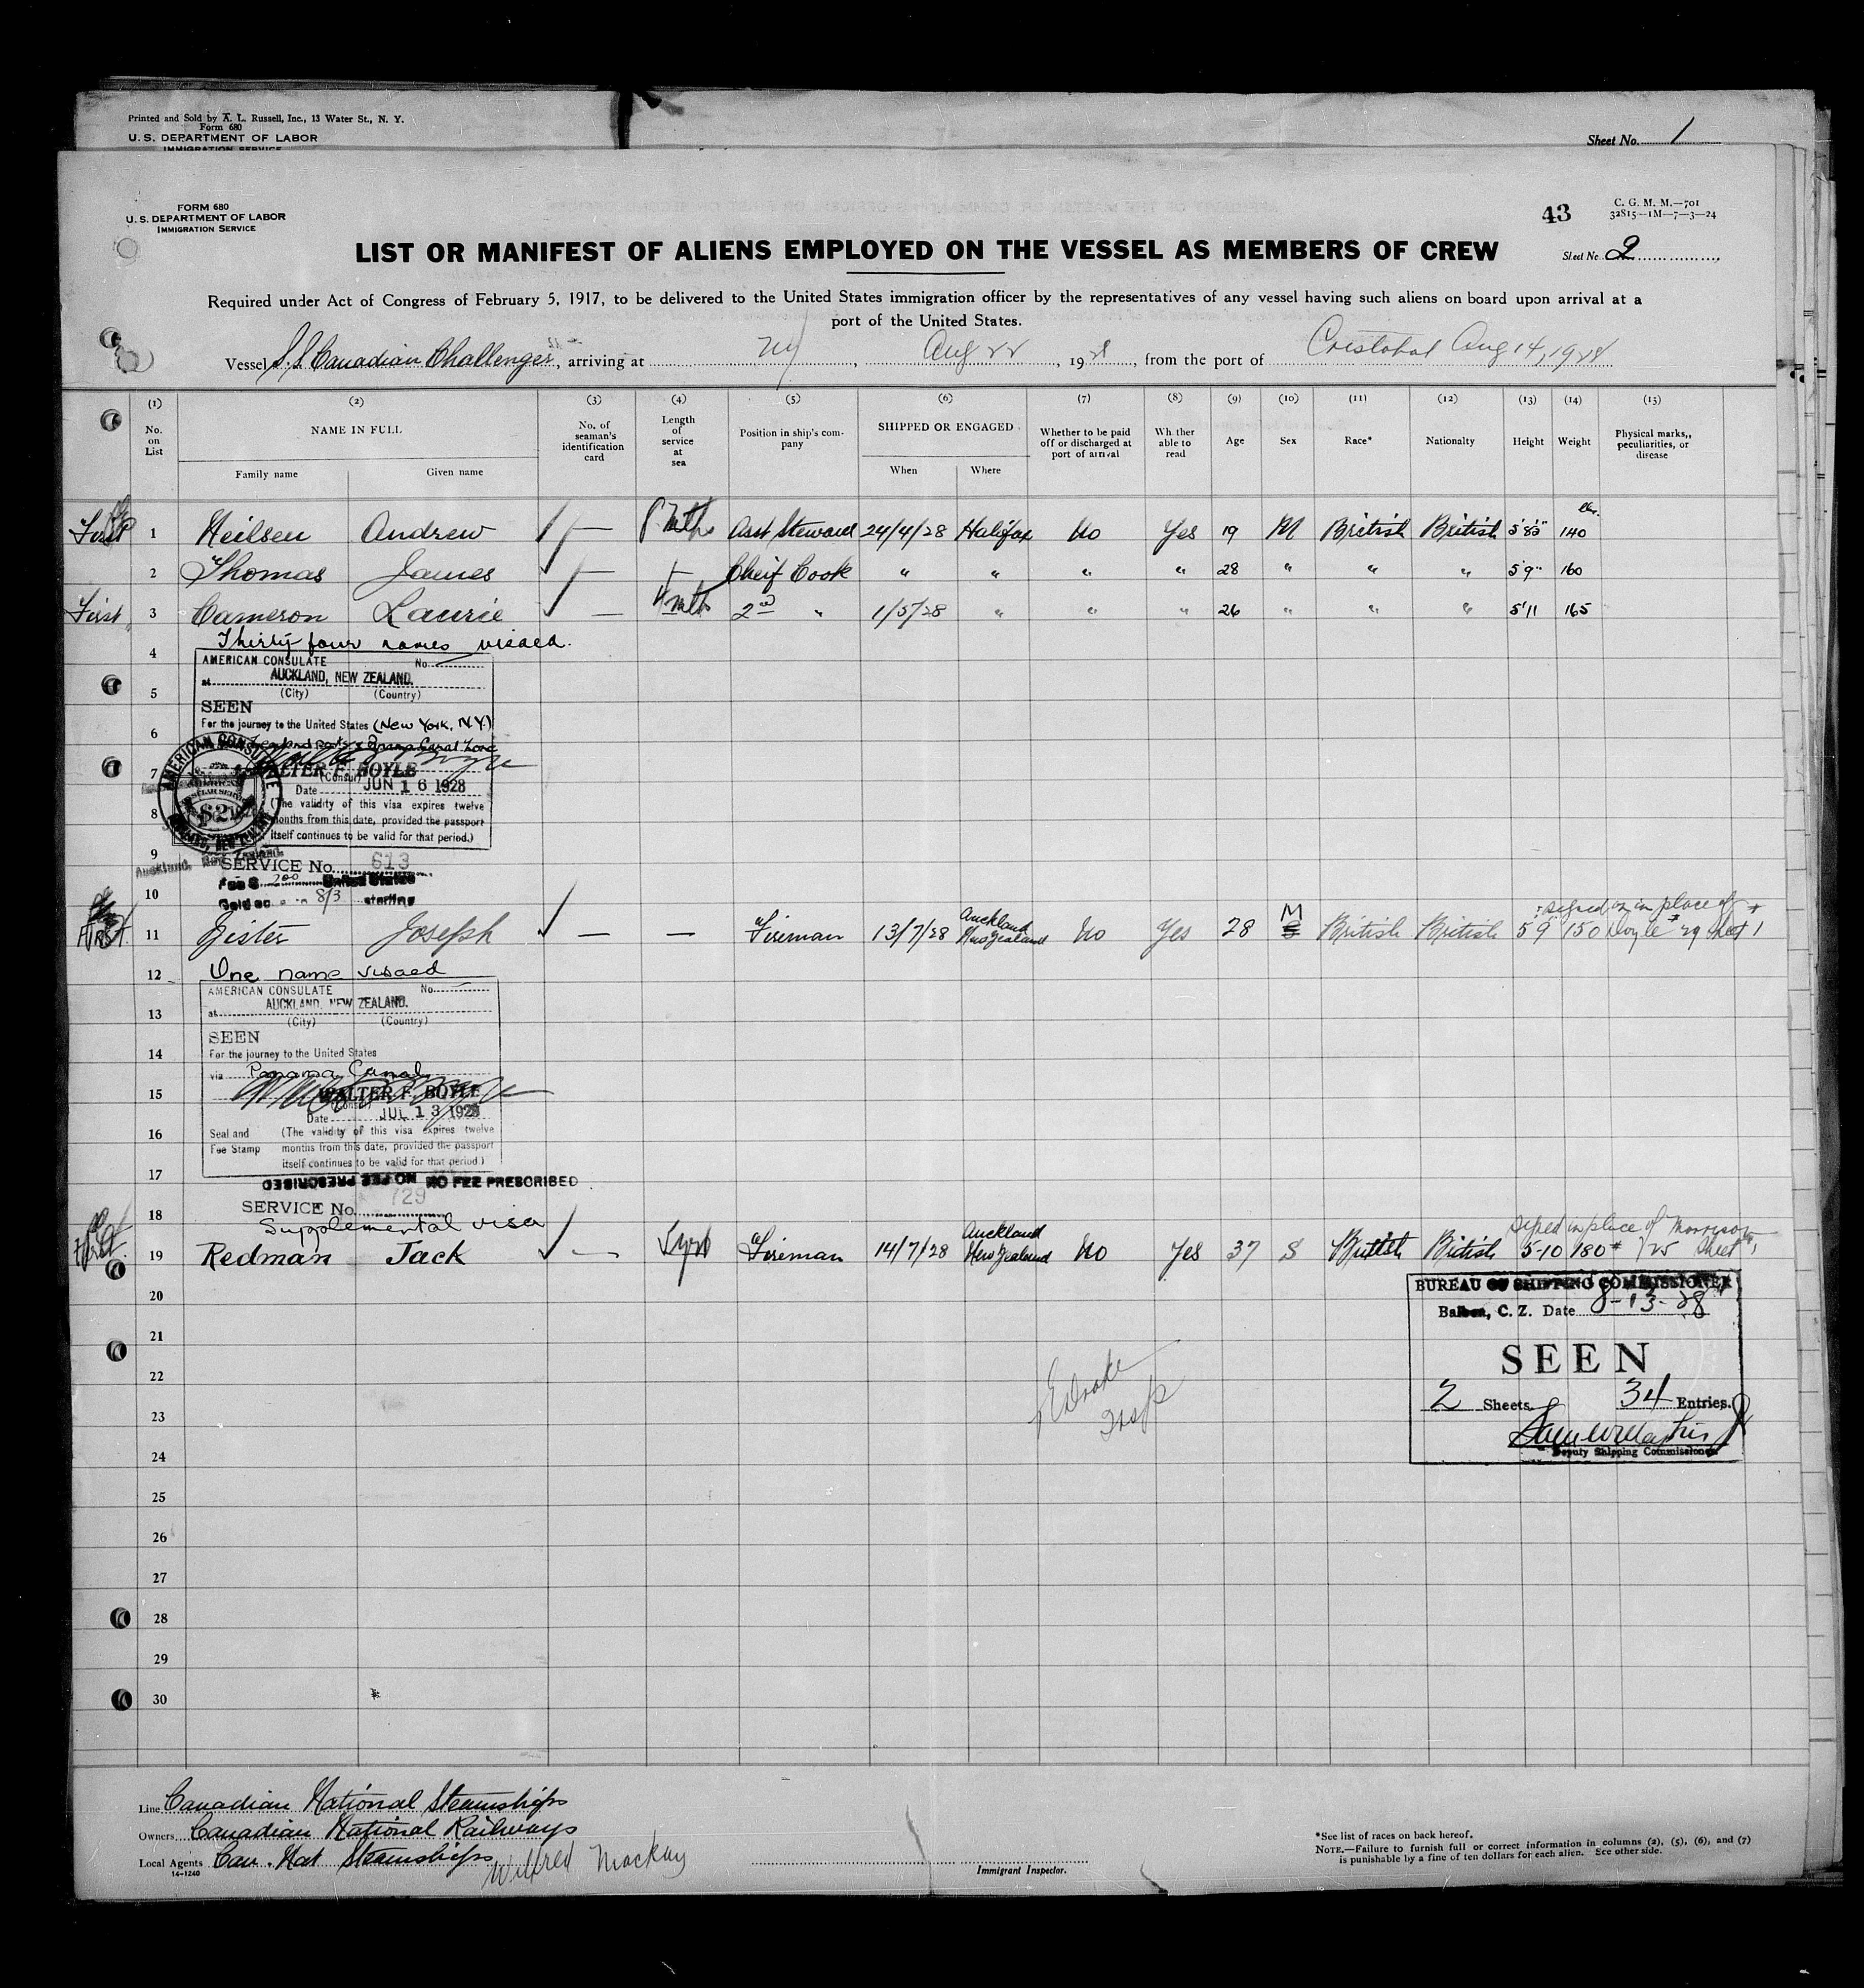 Printed and Sold by A. L. Russell, Inc., 13 Water St., N. Y.
Form 680
U. S. DEPARTMENT OF LABOR
IMMIGRATION SERVICE
Sheet No. 1
FORM 680
U. S. DEPARTMENT OF LABOR
IMMIGRATION SERVICE
43
C. G. M. M.—701
32815—1M—7—3—24
LIST OR MANIFEST OF ALIENS EMPLOYED ON THE VESSEL AS MEMBERS OF CREW
Sheet No. 2
Required under Act of Congress of February 5, 1917, to be delivered to the United States immigration officer by the representatives of any vessel having such aliens on board upon arrival at a
port of the United States.
Vessel S.S. Canadian Challenger, arriving at NY, Aug 22, 1928, from the port of Cristobal Aug 14, 1928
(1) (2) (3) (4) (5) (6) (7) (8) (9) (10) (11) (12) (13) (14) (15)
No. on List NAME IN FULL No. of seaman's identification card Length of service at sea Position in ship's company SHIPPED OR ENGAGED Whether to be paid off or discharged at port of arrival Whether able to read Age Sex Race* Nationalty Height Weight Physical marks,, peculiarities, or disease
Family name Given name When Where
First 1 Neilsen Andrew — mths Asst Steward 24/4/28 Halifax No Yes 19 M British British 5'8½" 140
2 Thomas James — Cheif Cook " " " " 28 " " " 5'9" 160
First 3 Cameron Laurie — 4 mths 2nd " 1/5/28 " " " 26 " " " 5'11 165
4 Thirty four names visaed.
AMERICAN CONSULATE No.
at AUCKLAND, NEW ZEALAND.
5 (City) (Country)
SEEN
For the journey to the United States (New York, N.Y.)
6
7 WALTER F. BOYLE
(Consul)
Date JUN 16 1928
(The validity of this visa expires twelve
8 months from this date, provided the passport
itself continues to be valid for that period.)
AMERICAN CONSULATE
$2
Auckland, New Zealand.
9 SERVICE No. 613
Fee $ 2.00 United States
10 Gold or 8/3 sterling
First 11 Jister Joseph — — Fireman 13/7/28 Auckland New Zealand No Yes 28 M British British 5 9 150 signed on in place of Doyle # 29 sheet 1
12 One name visaed
AMERICAN CONSULATE No.
13 at AUCKLAND, NEW ZEALAND.
(City) (Country)
SEEN
14 For the journey to the United States
via Panama Canal
15 WALTER F. BOYLE
(Consul)
Date JUL 13 1928
16 Seal and Fee Stamp (The validity of this visa expires twelve
months from this date, provided the passport
itself continues to be valid for that period.)
17 NO FEE PRESCRIBED NO FEE PRESCRIBED
SERVICE No. 729
18 Supplemental visa
First 19 Redman Jack — yrs Fireman 14/7/28 Auckland New Zealand No Yes 37 S British British 5-10 180 Signed in place of Morrison # 25 Sheet 1
20
21
22
23
24
25
26
27
28
29
30
BUREAU OF SHIPPING COMMISSIONER
Balboa, C. Z. Date 8-13-28
SEEN
2 Sheets 34 Entries.
Deputy Shipping Commissioner
Drake
Insp
Line Canadian National Steamships
Owners Canadian National Railways
Local Agents Can. Nat Steamships
14-1240
Wilfred Mackay
Immigrant Inspector.
*See list of races on back hereof.
NOTE.—Failure to furnish full or correct information in columns (2), (5), (6), and (7)
is punishable by a fine of ten dollars for each alien. See other side.